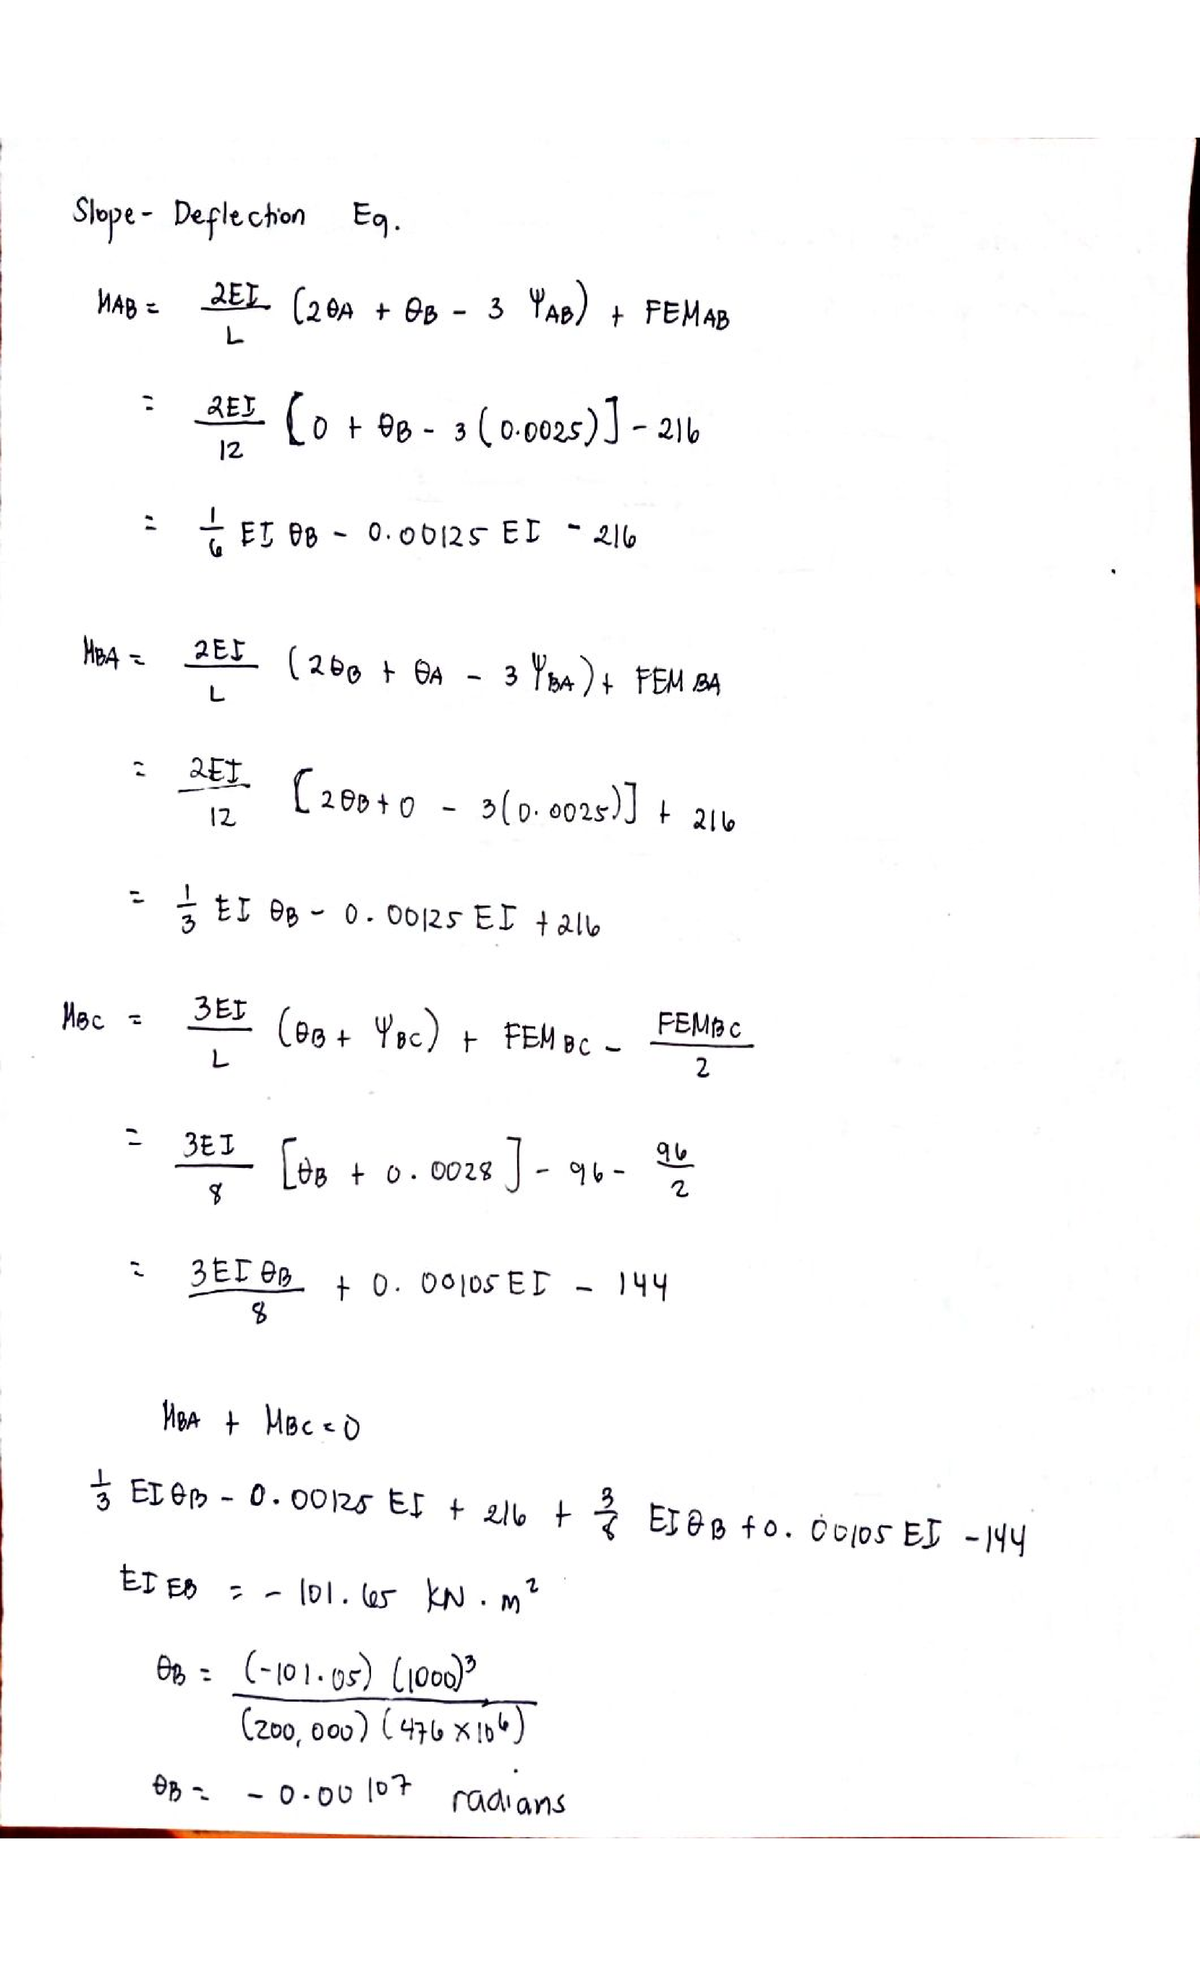 Slope - Deflection Eq.
MAB = 2EI/L (2θA + θB - 3 ΨAB) + FEMAB
= 2EI/12 [0 + θB - 3 (0.0025)] - 216
= 1/6 EI θB - 0.00125 EI - 216
MBA = 2EI/L (2θB + θA - 3 ΨBA) + FEM BA
= 2EI/12 [2θB + 0 - 3(0.0025)] + 216
= 1/3 EI θB - 0.00125 EI + 216
MBC = 3EI/L (θB + ΨBC) + FEM BC - FEMBC/2
= 3EI/8 [θB + 0.0028] - 96 - 96/2
= 3EI θB/8 + 0.00105 EI - 144
MBA + MBC = 0
1/3 EI θB - 0.00125 EI + 216 + 3/8 EI θB + 0.00105 EI - 144
EI EB = - 101.65 KN . m²
θB = (-101.05) (1000)³/(200,000) (476 x 10⁶)
θB = - 0.00107 radians